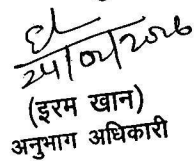 24/02/2026
(इरम खान)
अनुभाग अधिकारी